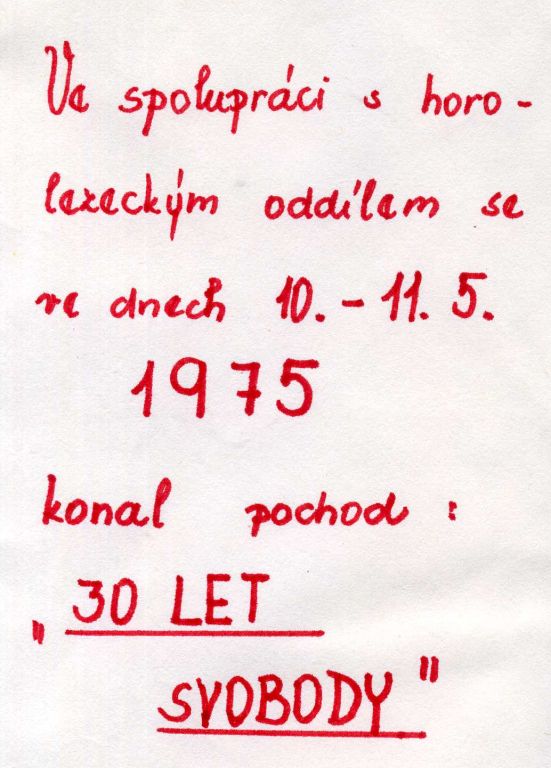 Ve spolupráci s horo-
lezeckým oddílem se
ve dnech 10. - 11. 5.
1975
konal pochod :
„30 LET
SVOBODY"